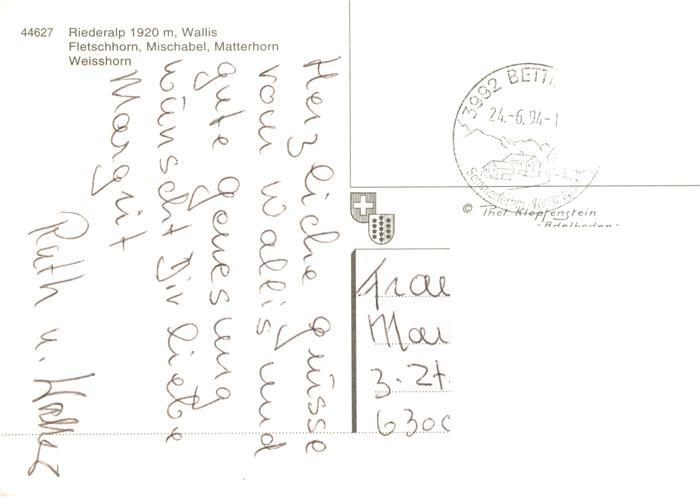 44627 Riederalp 1920 m, Wallis
Fletschhorn, Mischabel, Matterhorn
Weisshorn
Herzliche Grüsse
vom Wallis und
gute Genesung
wünscht Dir liebe
Margrit
Ruth u.
3992 BETT
24.-6.94-1
© Thof Klopfenstein
-Adelboden-
Frau
3. Zt.
630